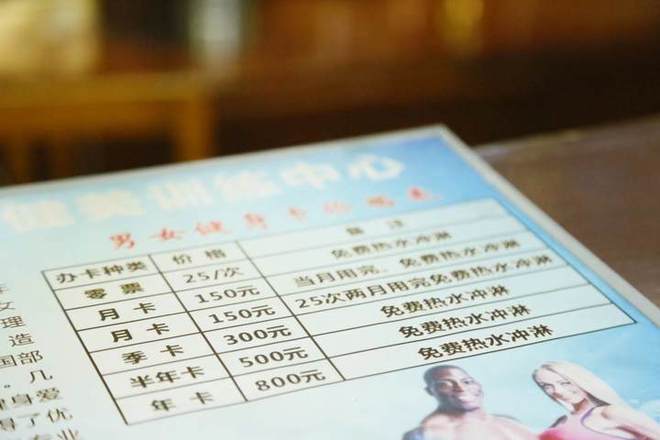 健美训练中心
男女健身卡价格表
办卡种类 价格 备注
零票 25/次 免费热水冲淋
月卡 150元 当月用完、免费热水冲淋
月卡 150元 25次两月用完免费热水冲淋
季卡 300元 免费热水冲淋
半年卡 500元 免费热水冲淋
年卡 800元 免费热水冲淋
理
造
国部
。”几
身爱
得了优
专业